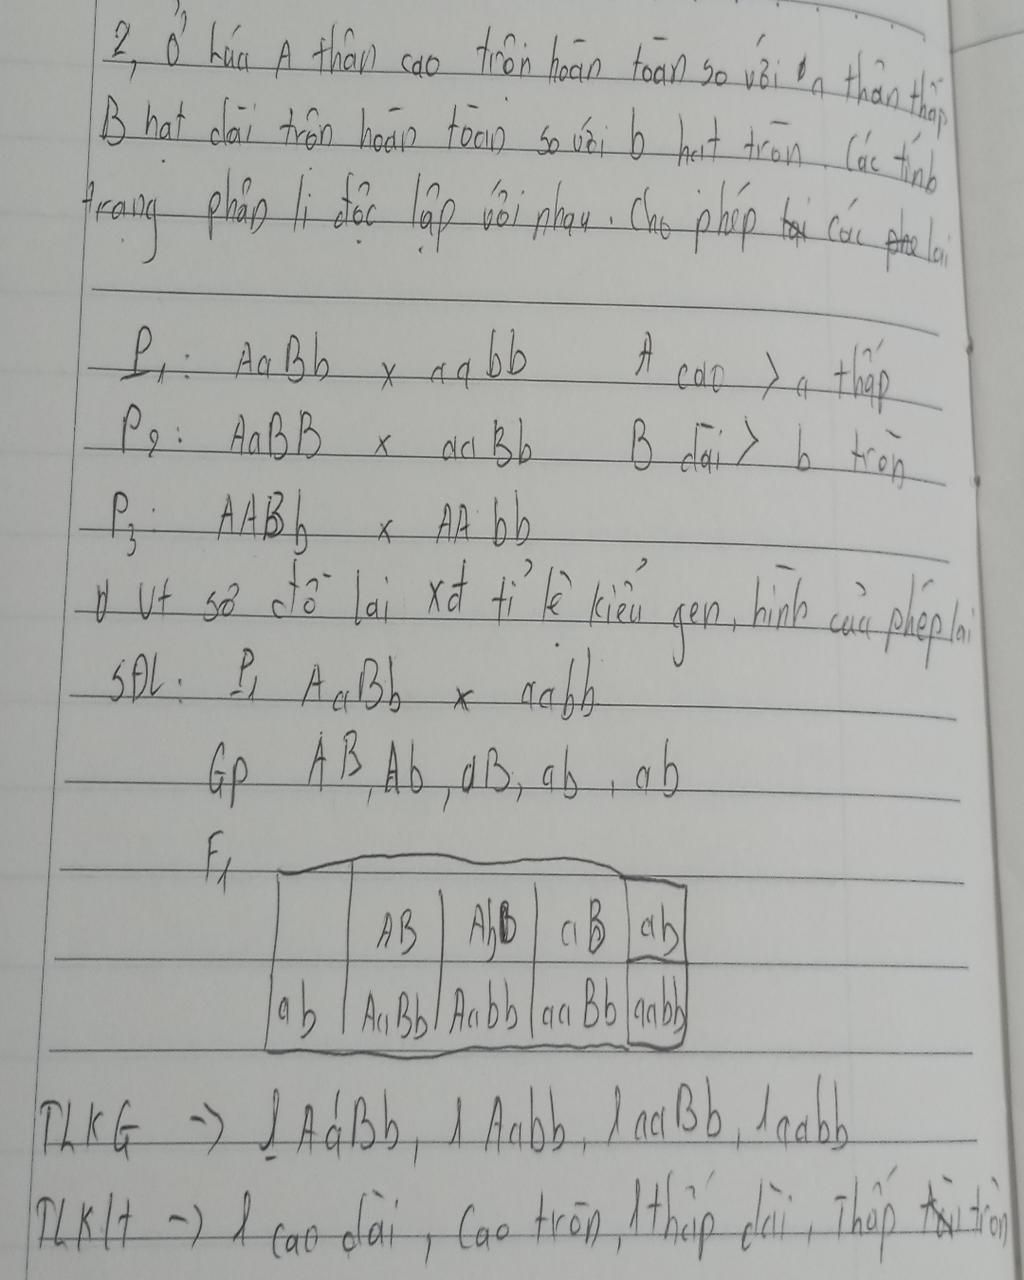 2, Ở lúa A thân cao trôn hoàn toàn so với a thân thấp
B hạt dài trôn hoàn toàn so với b hạt tròn. Các tính
trạng phân li độc lập với nhau. Cho phép các lai
P1: AaBb x aabb A cao > a thấp
P2: AaBB x aaBb B dài > b tròn
P3: AABb x AAbb
Vt sơ đồ lai xđ tỉ lệ kiểu gen, hình của phép lai
SĐL: P1 AaBb x aabb
Gp AB, Ab, aB, ab, ab
F1
AB Ab aB ab
ab AaBb Aabb aaBb aabb
TLKG -> 1 AaBb, 1 Aabb, 1 aaBb, 1 aabb
TLKH -> 1 cao dài, Cao tròn, 1 thấp dài, Thấp tròn